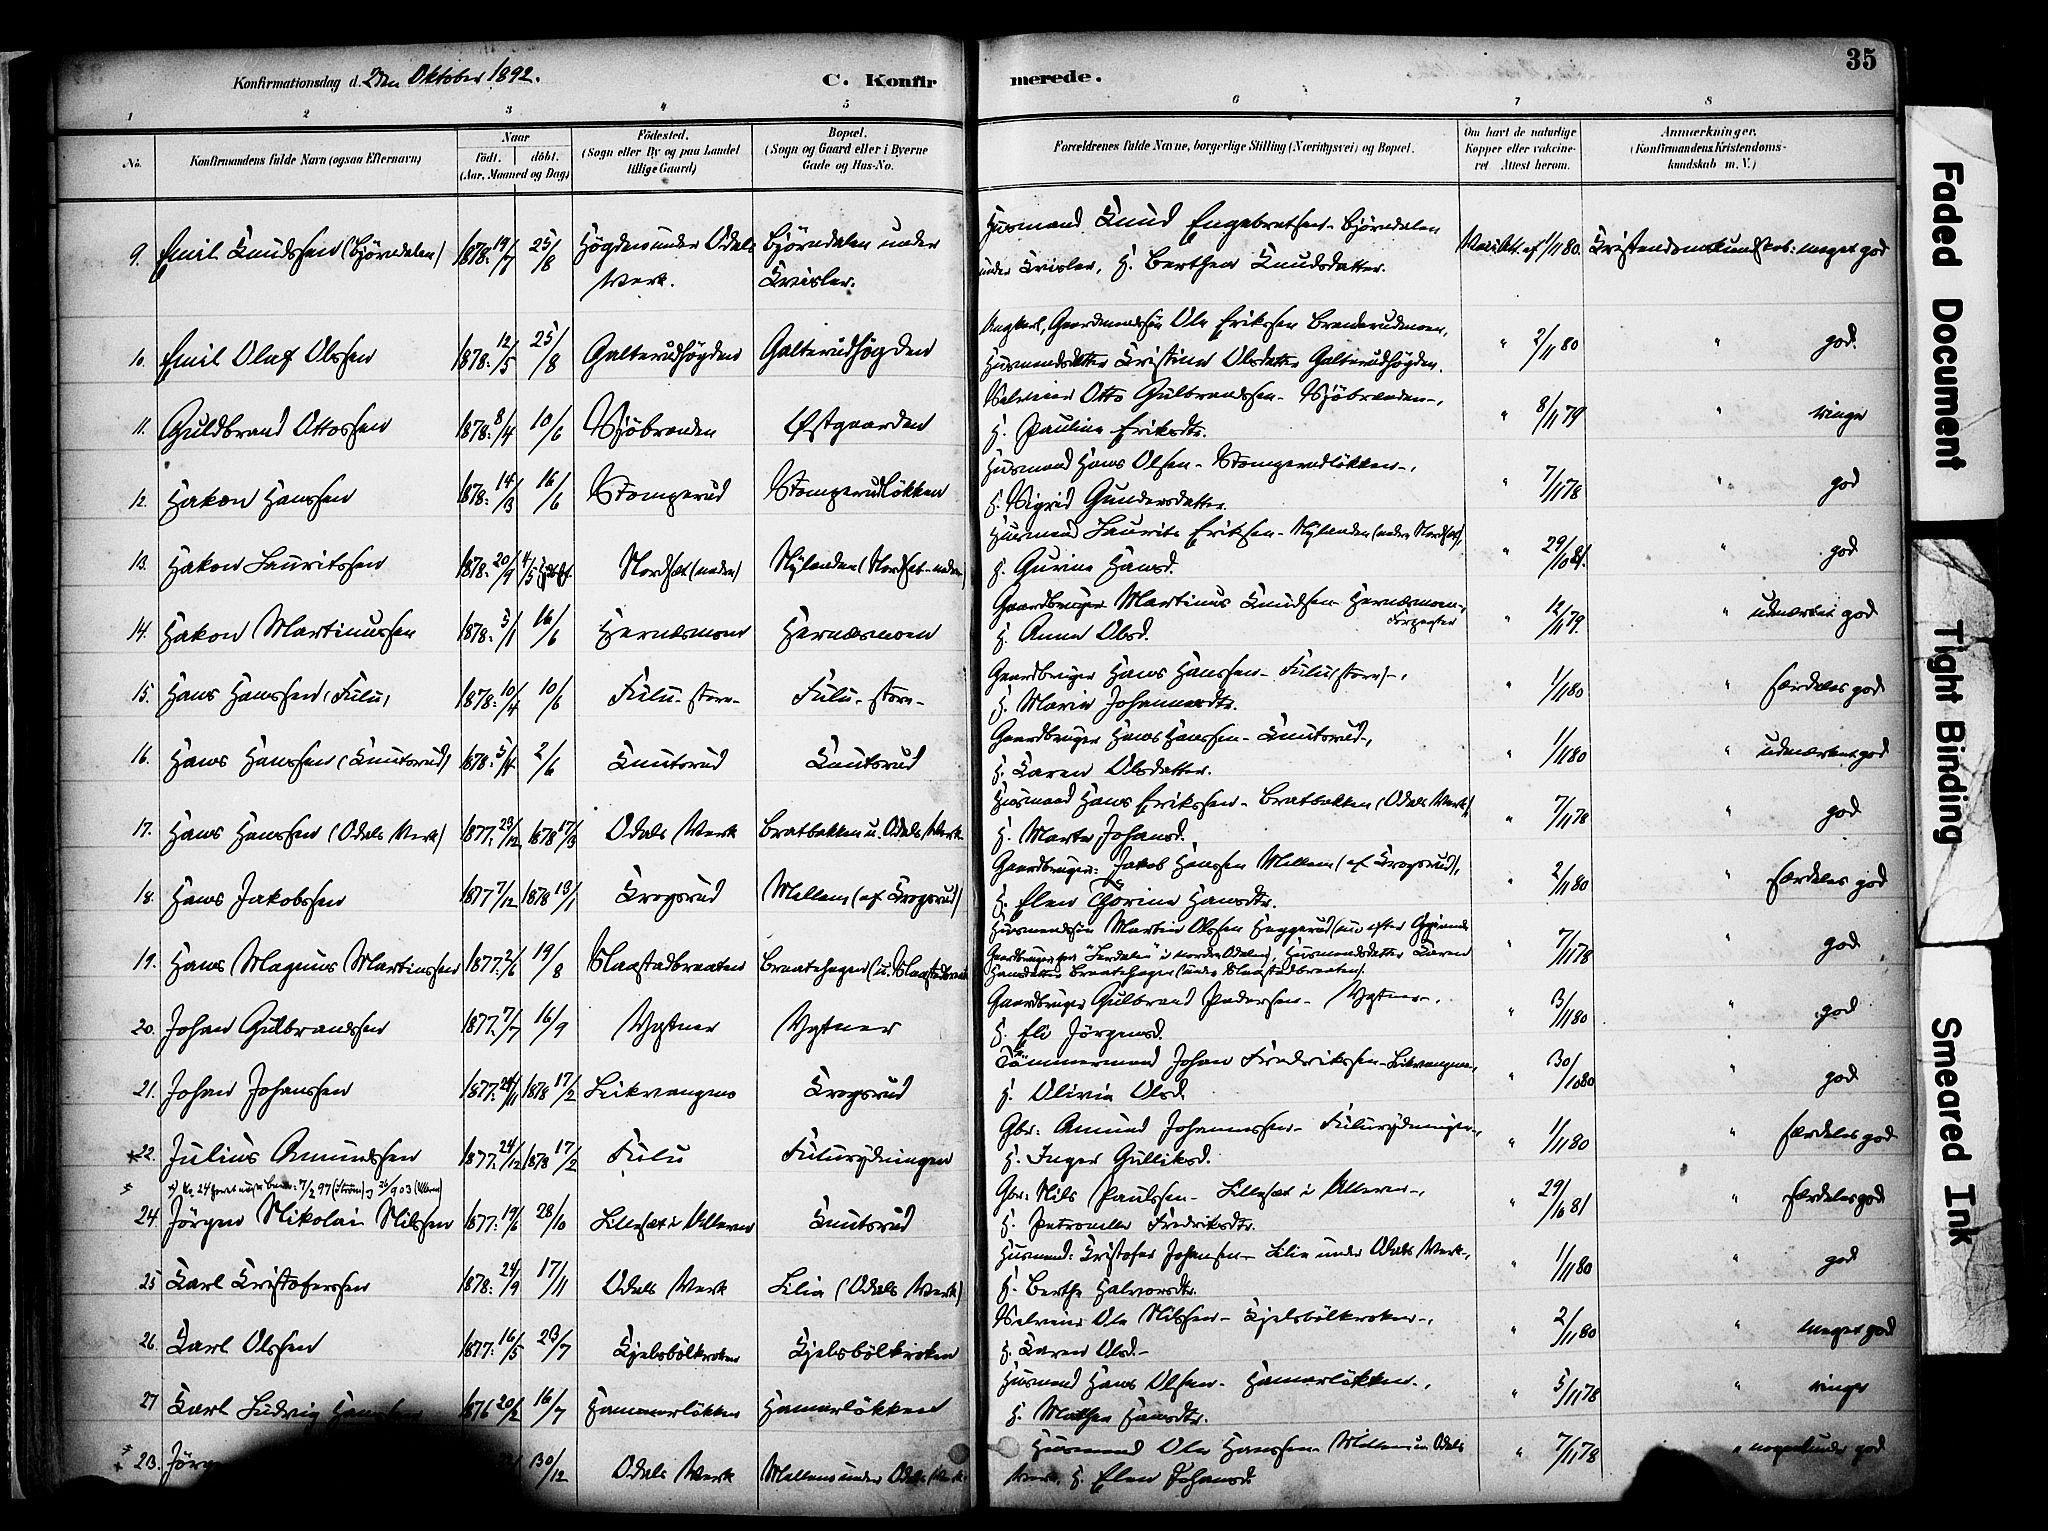 35
Konfirmationsdag d. 2den Oktober 1892.
C. Konfirmerede.
1 2 3 4 5 6 7 8
No.
Konfirmandens fulde Navn (ogsaa Efternavn)
Naar
födt. döbt.
(Aar, Maaned og Dag)
Födested.
(Sogn eller By og paa Landet
tillige Gaard)
Bopæl.
(Sogn og Gaard eller i Byerne
Gade og Hus-No.
Forældrenes fulde Navne, borgerlige Stilling (Næringsvei) og Bopæl.
Om havt de naturlige
Kopper eller vaccine-
ret Attest herom.
Anmærkninger.
(Konfirmandens Kristendoms-
kundskab m. V.)
9. Emil Knudssen (Björndalen) 1878: 19/7 25/8 Högden under Odals Björndalen under
Werk. Kvisler.
Husmand Knud Engebretsen - Björndalen
under Kvisler, H. Berthea Knudsdatter. 1/11 80. Kristendomskundskab: meget god
10. Emil Olaf Olssen 1878: 12/5 25/8 Galterudhögden Galterudhögden
Ungkarl, Gaardmandssön Ole Erikssen Branderudmoen,
Husmandsdatter Kristine Olsdatter Galterudhögden. " 2/11 80 " god.
11. Guldbrand Ottossen 1878: 8/4 10/6 Sjöbrenden Østgaarden
Selveier Otto Gulbrandssen - Sjöbrenden -,
H. Pauline Eriksdtr. " 8/11 79 " ringe
12. Hakon Hanssen 1878: 14/3 16/6 Stomperud Stomperudlökken
Husmand Hans Olsen - Stomperudlökken -,
H. Sigrid Gundersdatter. " 7/11 78 " god
13. Hakon Lauritssen 1878: 20/9 4/5 Nordset (nedre) Nylenden (Nordset - nedre)
Husmand Laurits Eriksen - Nylanden (nedre Nordset),
H. Gurine Hansd. " 29/10 81. " god
14. Hakon Martinussen 1878: 5/1 16/6 Hernæsmoen Hernæsmoen
Gaardbruger Martinus Knudsen - Hernæsmoen -,
H. Anne Olsd. " 12/11 79. " udmerket god
15. Hans Hanssen (Fulu) 1878: 10/4 10/6 Fulu - store - Fulu - store -
Gaardbruger Hans Hanssen - Fulu (store) -,
H. Marie Johannesdtr. " 1/11 80 " særdeles god
16. Hans Hanssen (Knutsrud) 1878: 5/4 2/6 Knutsrud Knutsrud
Gaardbruger Hans Hanssen - Knutsrud -,
H. Karen Olsdatter. " 1/11 80 " udmerket god
17. Hans Hanssen (Odals Verk) 1877: 23/12 1878 17/3 Odals Werk Bratbakken u. Odals Werk
Husmand Hans Erikssen - Bratbakken (Odals Werk),
H. Marte Johansd. " 7/11 78 " god
18. Hans Jakobssen 1877 7/12 1878 13/1 Krogsrud Mellem (af Krogsrud)
Gaardbruger: Jakob Hanssen Mellem (af Krogsrud),
H. Elen Thorine Hansdtr. " 2/11 80 " særdeles god
19. Hans Magnus Martinssen 1877: 2/6 19/8 Slaastadbraaten Braatehagen (u. Slaastadbraaten
Husmandssön Martin Olssen Heggerud (nu efter
Gaardbruger paa i nordre Odalen), Husmandsdatter Karen
Hansdatter Braatehagen (under Slaastadbraaten). " 7/11 78 " god
20. Johan Gulbrandsen 1877: 7/7 16/9 Ygtner Ygtner
Gaardbruger Gulbrand Pedersen - Ygtner -,
H. Eli Jörgensd. " 3/11 80 " god
21. Johan Johanssen 1877: 24/11 1878 17/2 Leikvangene Krogsrud
Tömmermand Johan Fredrikssen - Leikvangene,
H. Olivia Olsd. " 30/10 80 " god
22. Julius Amundssen 1877: 24/12 1878 17/2 Fulu Fulurydningen
Gbr: Amund Johannessen - Fulurydningen,
H. Inger Gulliksd. " 1/11 80 " særdeles god
24. Jörgen Nikolai Nilssen 1877: 19/6 28/10 Lilleset i Ulleren Knutsrud
Gbr: Nils Paulssen - Lilleset i Ulleren -,
H. Petronelle Fredriksdtr. " 29/10 81 " særdeles god
25 Karl Kristoferssen 1878: 24/9 17/11 Odals Werk Lilia (Odals Werk)
Husmand: Kristofer Johansen - Lilia under Odals Werk,
H. Berthe Halvorsdtr. " 1/11 80 " god
26. Karl Olssen 1877: 16/5 23/7 Kjelsbölkroken Kjelsbölkroken
Selveier Ole Nilssen - Kjelsbölkroken -,
H. Karen Olsd. - " 2/11 80 " meget god
27 Karl Ludvig 1876 20/2 16/7 Hammerlökken Hamerlökken
Husmand Hans Olsen - Hamerlökken -,
H. Mathea Hansdtr. " 5/11 78 " ringe
23. 30/12 Odals Werk Mellem under Odals Werk
Husmand Ole Hanssen - Mellem u. Odals
Werk, H. Elen Johansd. " 7/11 78 " nogenlunde god
Faded Document
Tight Binding
Smeared Ink